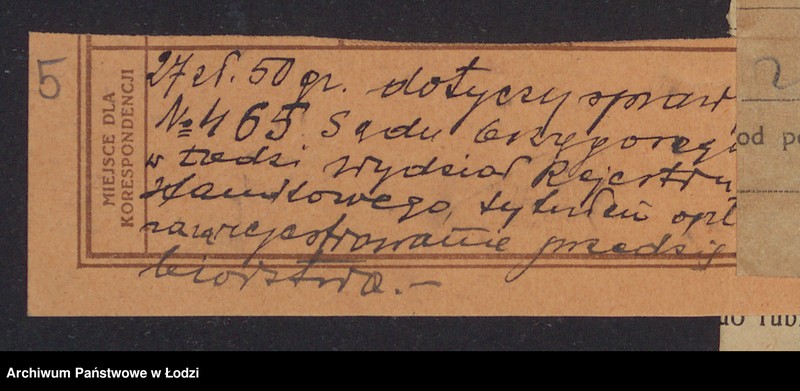 5
MIEJSCE DLA
KORESPONDENCJI
27 zł. 50 gr. dotyczy spraw
№ 465 Sądu Okręgoweg
w Łodzi Wydział Rejestru
Handlowego, tytułem opł
za zarejestrowanie przedsię
biorstwa.-
2
od po
Archiwum Państwowe w Łodzi